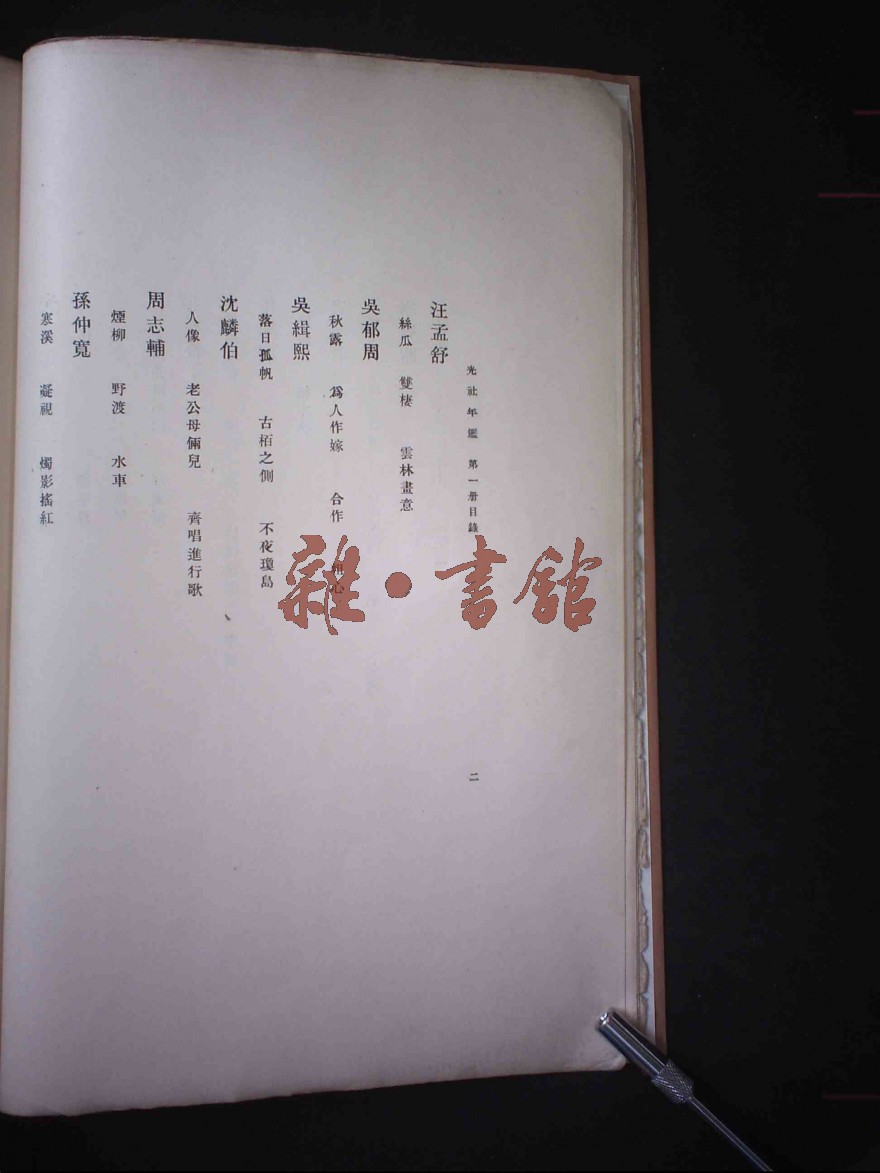 光社年鑑 第一册目錄 二
汪孟舒
絲瓜 雙棲 雲林畫意
吳郁周
秋露 爲人作嫁 合作 心
吳緝熙
落日孤帆 古栢之側 不夜瓊島
沈麟伯
人像 老公母倆兒 齊唱進行歌
周志輔
煙柳 野渡 水車
孫仲寬
寒溪 凝視 燭影搖紅
雜·書館